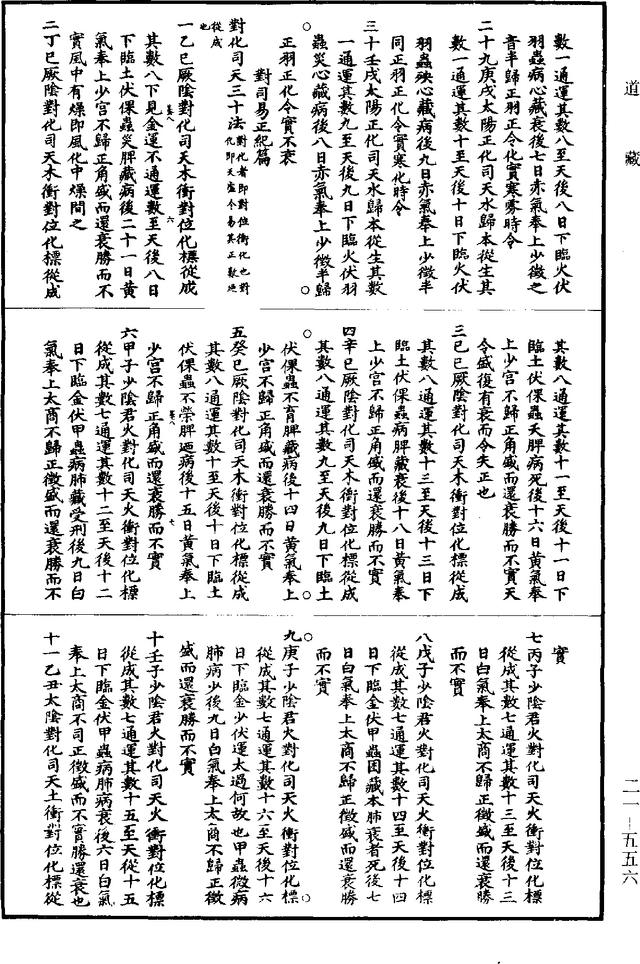 道藏
數一通運其數八至天後八日下臨火伏
羽蟲病心藏衰後七日赤氣奉上少徵之
音半歸正羽正令化實寒雾時令
二十九庚戌太陽正化司天水歸本從生其
數一通運其數十至天後十日下臨火伏
羽蟲殃心藏病後九日赤氣奉上少徵半
同正羽正化令實寒化時令
三十壬戌太陽正化司天水歸本從生其數
一通運其數九至天後九日下臨火伏羽
蟲災心藏病後八日赤氣奉上少徵半歸
正羽正化令實不衰
對司易正紀篇
對化司天三十法對化者即對位衝化也對化即天虛令易其正數廼從成也
一乙巳厥陰對化司天木衝對位化標從成
其數八下見金運不通運數至天後八日
下臨土伏倮蟲災脾藏病後二十一日黃
氣奉上少宮不歸正角盛而還衰勝而不
實風中有燥即風化中燥間之
二丁巳厥陰對化司天木衝對位化標從成
其數八通運其數十一至天後十一日下
臨土伏倮蟲夭脾病死後十六日黃氣奉
上少宮不歸正角盛而還衰勝而不實天
令盛復有衰而令失正也
三己巳厥陰對化司天木衝對位化標從成
其數八通運其數十三至天後十三日下
臨土伏倮蟲病脾藏衰後十八日黃氣奉
上少宮不歸正角盛而還衰勝而不實
四辛巳厥陰對化司天木衝對位化標從成
其數八通運其數九至天後九日下臨土
伏倮蟲不育脾藏病後十四日黃氣奉上
少宮不歸正角盛而還衰勝而不實
五癸巳厥陰對化司天木衝對位化標從成
其數八通運其數十至天後十日下臨土
伏倮蟲不榮脾廼病後十五日黃氣奉上
少宮不歸正角盛而還衰勝而不實
六甲子少陰君火對化司天火衝對位化標
從成其數七通運其數十二至天後十二
日下臨金伏甲蟲病肺藏受刑後九日白
氣奉上太商不歸正徵盛而還衰勝而不
實
七丙子少陰君火對化司天火衝對位化標
從成其數七通運其數十三至天後十三
日白氣奉上太商不歸正徵盛而還衰勝
而不實
八戊子少陰君火對化司天火衝對位化標
從成其數七通運其數十四至天後十四
日下臨金伏甲蟲困藏本肺衰者死後七
日白氣奉上太商不歸正徵盛而還衰勝
而不實
九庚子少陰君火對化司天火衝對位化標
從成其數七通運其數十六至天後十六
日下臨金少伏運太過何故也甲蟲微病
肺病少後九日白氣奉上太商不歸正徵
盛而還衰勝而不實
十壬子少陰君火對化司天火衝對位化標
從成其數七通運其數十五至天從十五
日下臨金伏甲蟲病肺病衰後六日白氣
奉上太商不司正徵盛而不實勝還衰也
十一乙丑太陰對化司天土衝對位化標從
二一－五五六